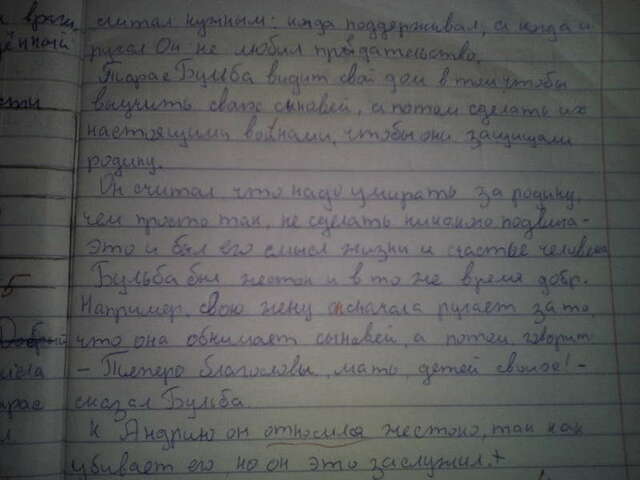 враги, считал нужным: когда поддерживал, а когда и
ругал Он не любил предательство.
Тарас Бульба видит свой дом в том чтобы
выучить своих сыновей, а потом сделать их
настоящими воинами, чтобы они защищали
родину.
Он считал, что надо умирать за родину,
чем просто так, не сделать никакого подвига -
это и был его смысл жизни и счастье человека
Бульба был жесток и в то же время добр.
5
Например, свою жену сначала ругает за то,
Добрый что она обнимает сыновей, а потом говорит
- Теперо благослови, мать, детей своих! -
сказал Бульба.
К Андрию он относился жестоко, так как
убивает его, но он это заслужил.+